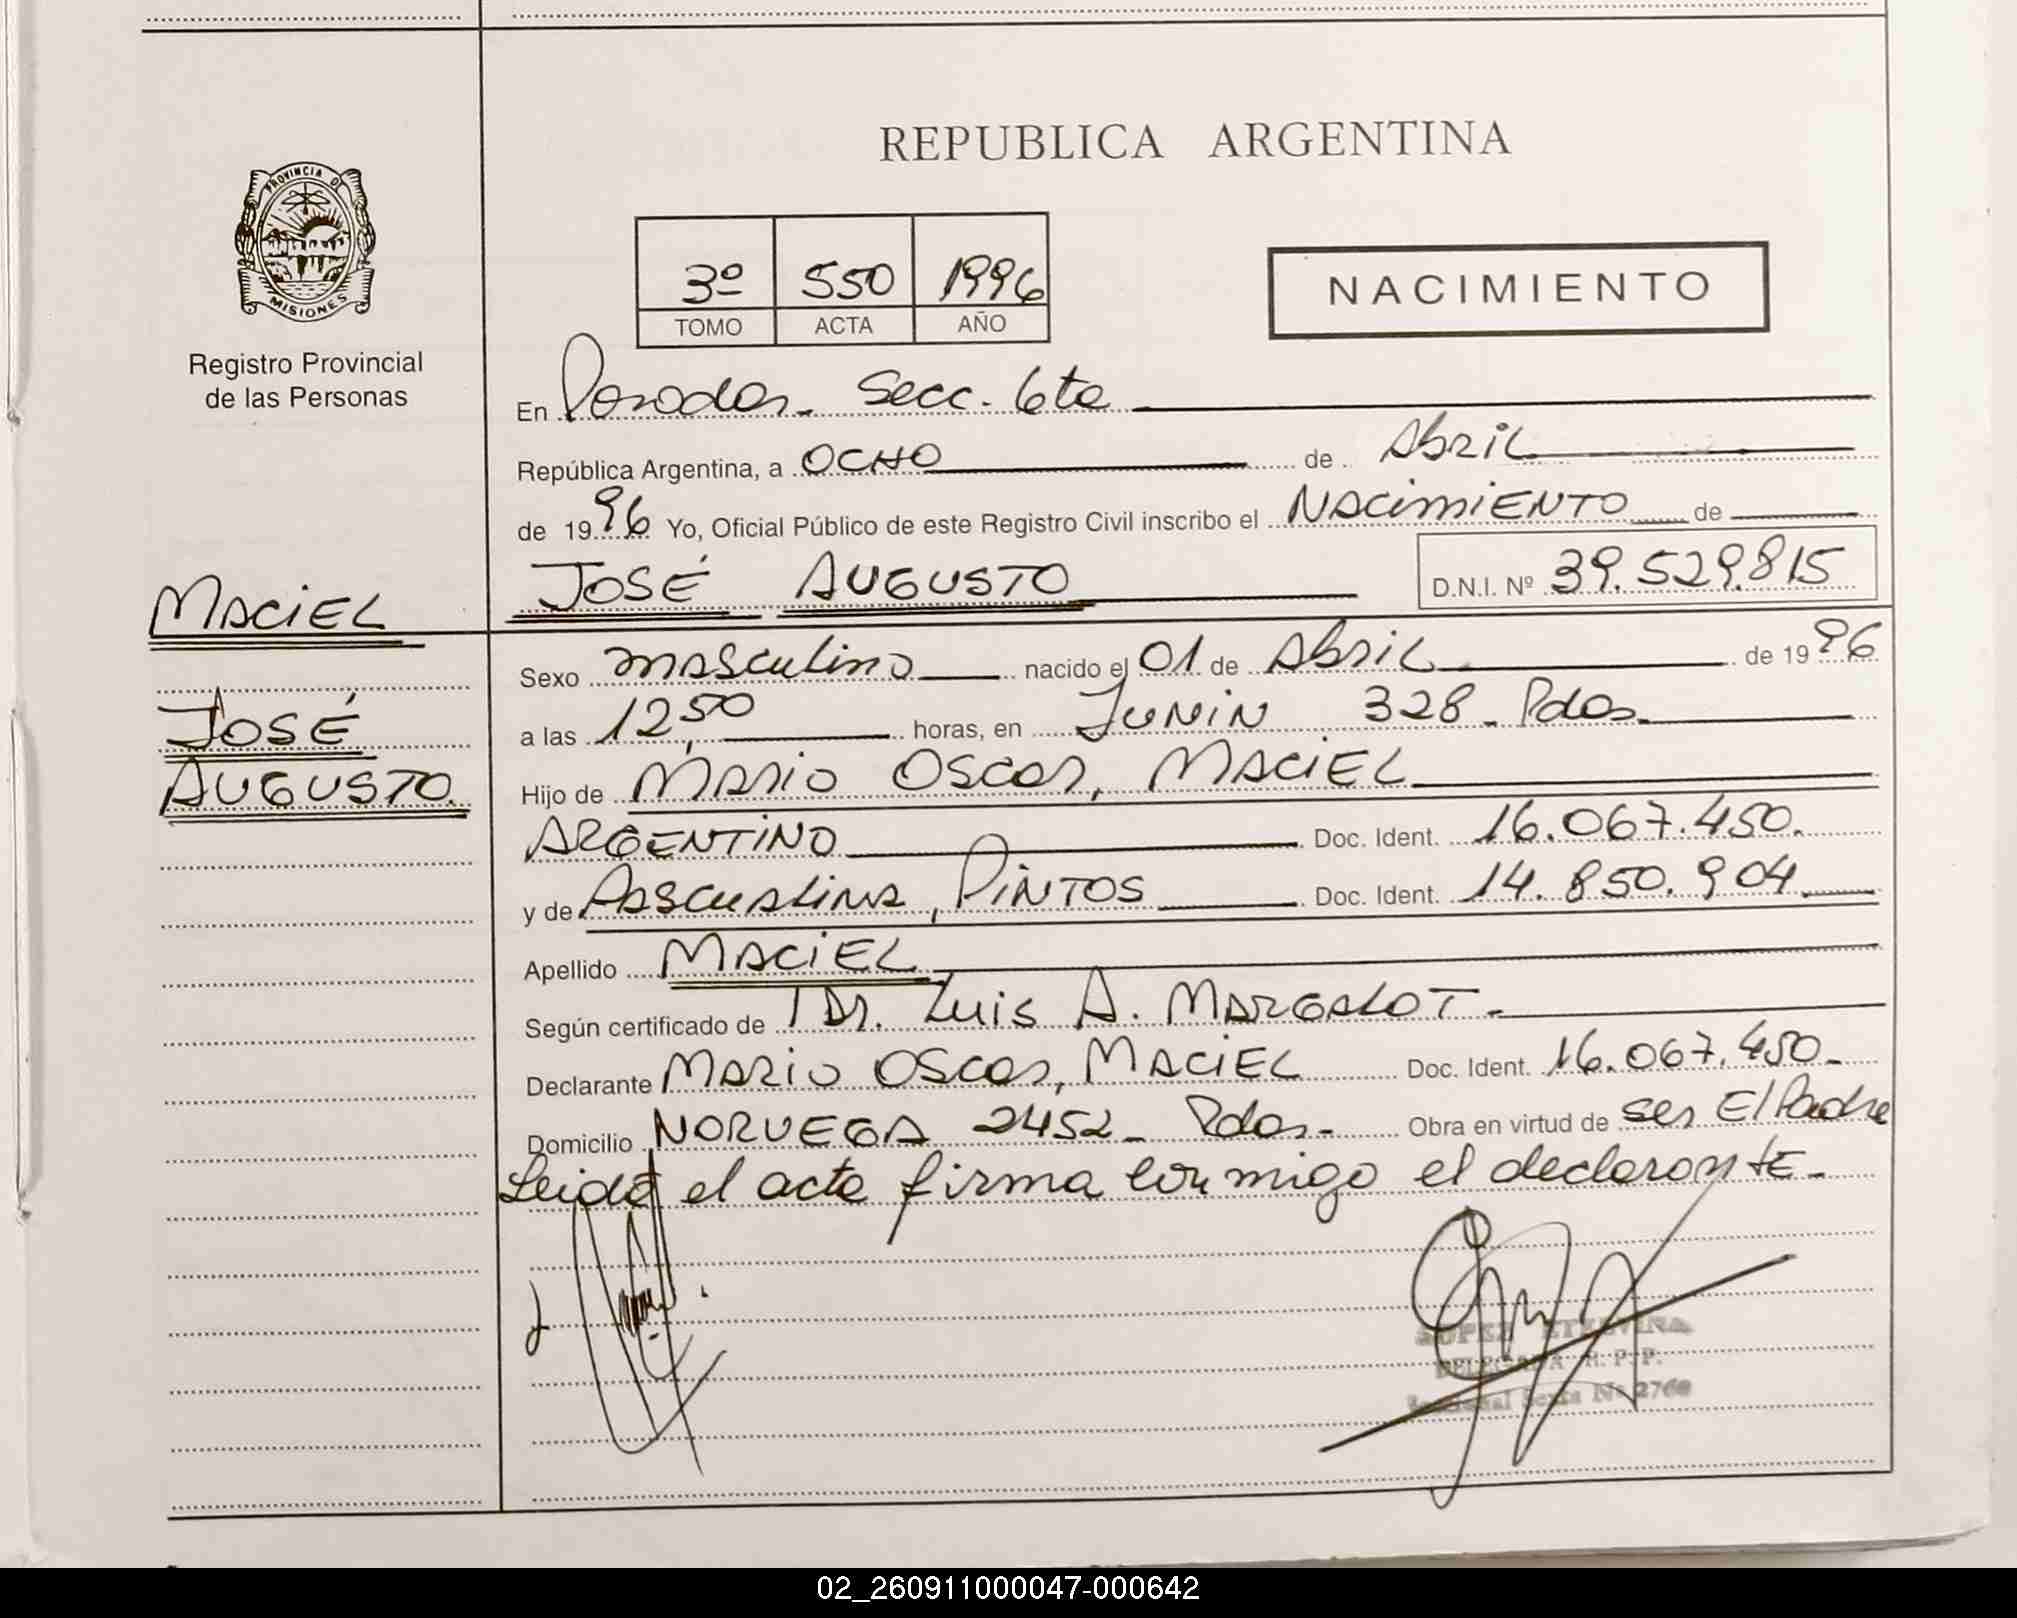 REPUBLICA ARGENTINA
PROVINCIA DE
MISIONES
Registro Provincial
de las Personas
3º 550 1996
TOMO ACTA AÑO
NACIMIENTO
En Posadas. Secc. 6ta
República Argentina, a OCHO de Abril
de 1996 Yo, Oficial Público de este Registro Civil inscribo el NACIMIENTO de
JOSÉ AUGUSTO D.N.I. Nº 39.529.815
MACIEL
JOSÉ
AUGUSTO.
Sexo masculino nacido el 01 de Abril de 1996
a las 12,50 horas, en JUNIN 328 - Pdas.
Hijo de Mario Oscar, MACIEL
ARGENTINO Doc. Ident. 16.067.450.
y de Pascualina, PINTOS Doc. Ident. 14.850.904.
Apellido MACIEL
Según certificado de Dr. Luis A. MARGALOT.-
Declarante Mario Oscar, MACIEL Doc. Ident. 16.067.450-
Domicilio NORUEGA 2452- Pdas.- Obra en virtud de ser El Padre
Leida el acta firma conmigo el declarante-
LOPEZ ETELVINA
DELEGADA R. P. P.
Seccional Sexta Nº 2760
02_260911000047-000642